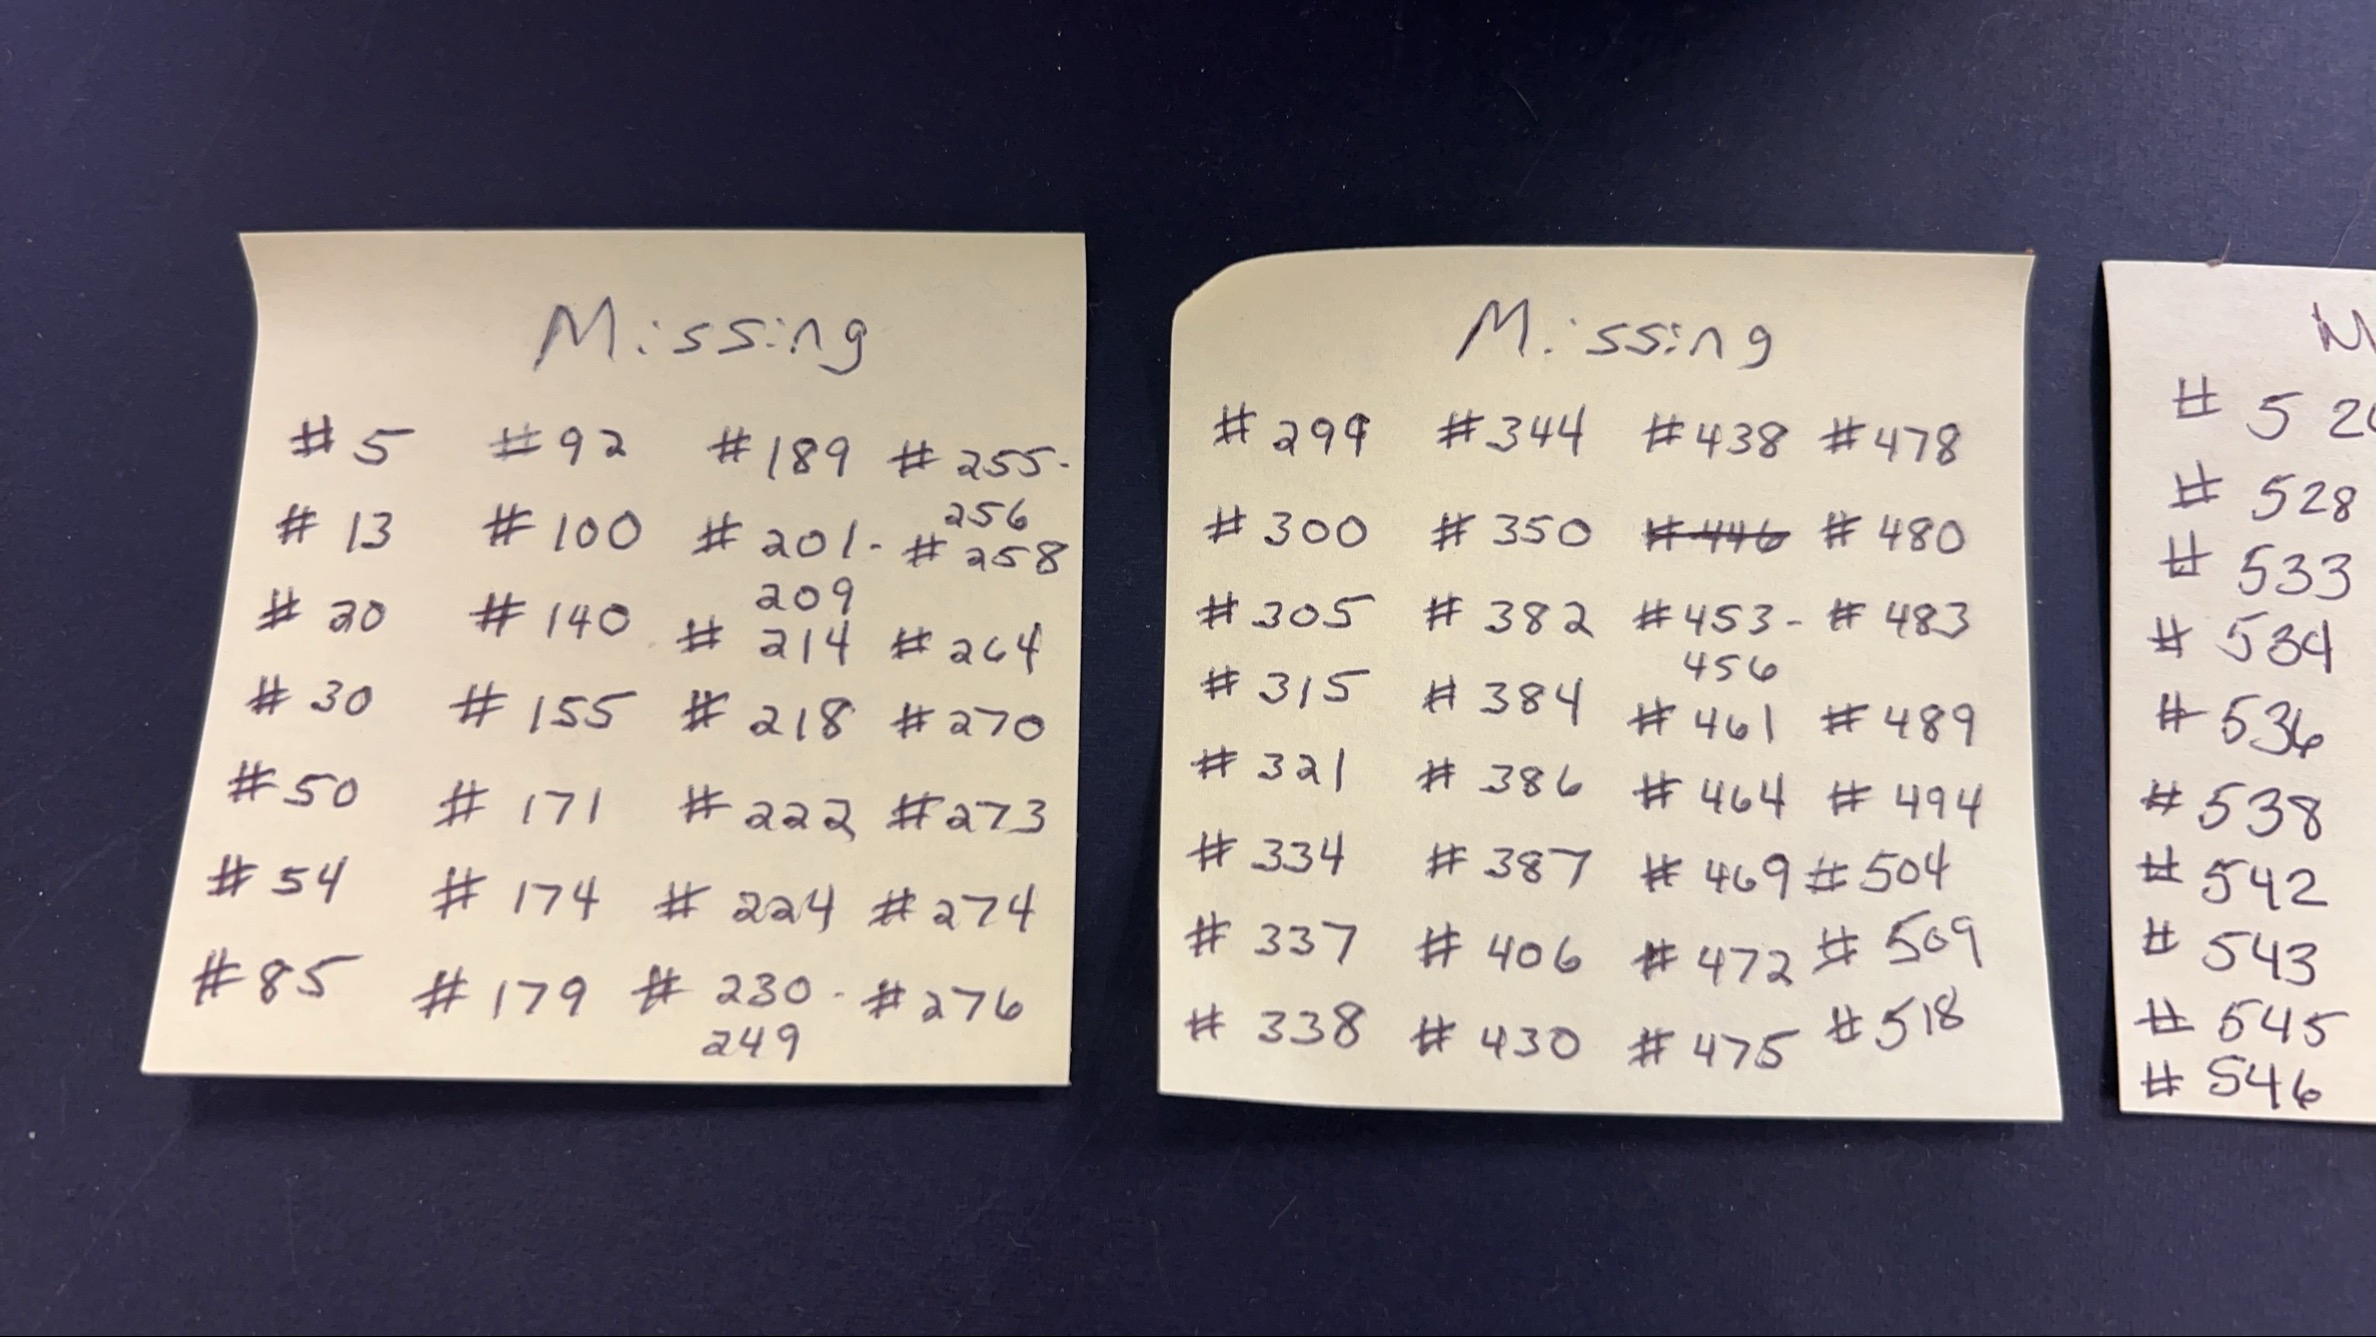 Missing
#5 #92 #189 #255-
256
#13 #100 #201- #258
209
#20 #140 #214 #264
#30 #155 #218 #270
#50 #171 #222 #273
#54 #174 #224 #274
#85 #179 #230- #276
249
Missing
#299 #344 #438 #478
#300 #350 #446 #480
#305 #382 #453- #483
456
#315 #384 #461 #489
#321 #386 #464 #494
#334 #387 #469 #504
#337 #406 #472 #509
#338 #430 #475 #518
#528
#533
#534
#536
#538
#542
#543
#545
#546